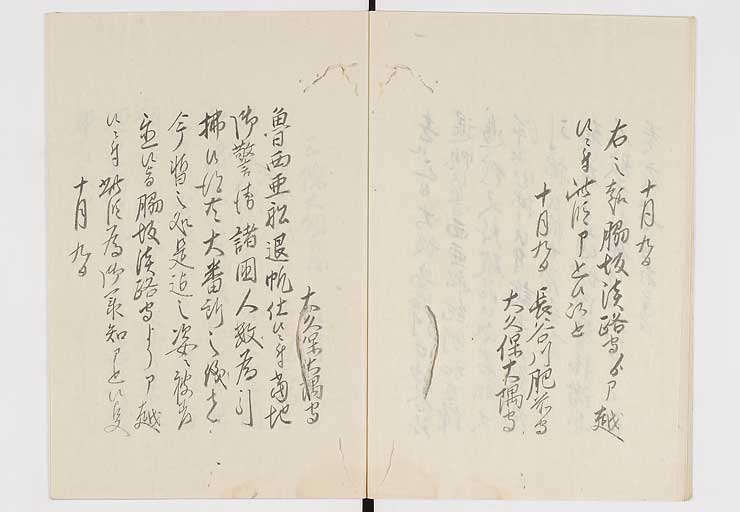 十月九日
右之趣脇坂淡路守ゟ申越
候ニ付此段申上候以上
十月九日 長谷川肥前守
大久保大隅守
大久保大隅守
魯西亜船退帆仕候ニ付当地
御警衛諸国人数為引
払候段大番所之儀者
今暫之処是迄之姿ニ被
置候旨脇坂淡路守より申越
候ニ付此段為御承知申上候以
十月九日